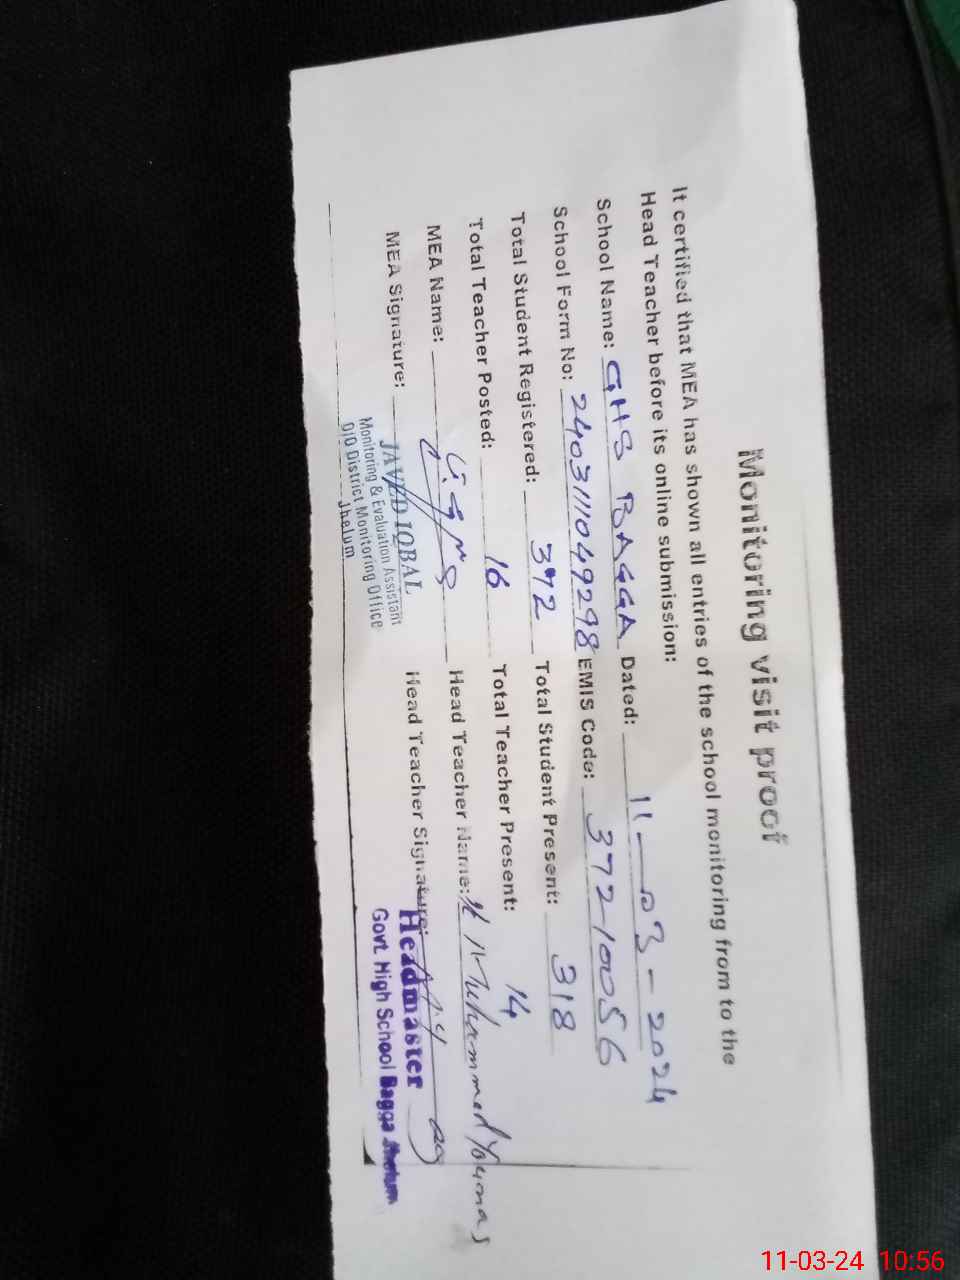 Monitoring visit proof
It certified that MEA has shown all entries of the school monitoring from to the
Head Teacher before its online submission:
School Name: GHS BAGGA Dated: 11-03-2024
School Form No: 2403111049298 EMIS Code: 37210056
Total Student Registered: 372 Total Student Present: 318
Total Teacher Posted: 16 Total Teacher Present: 14
MEA Name: Head Teacher Name: Muhammad Younas
MEA Signature: Head Teacher Signature:
JAVED IQBAL
Monitoring & Evaluation Assistant
O/O District Monitoring Office
Jhelum
Headmaster
Govt. High School Bagga Jhelum
11-03-24 10:56